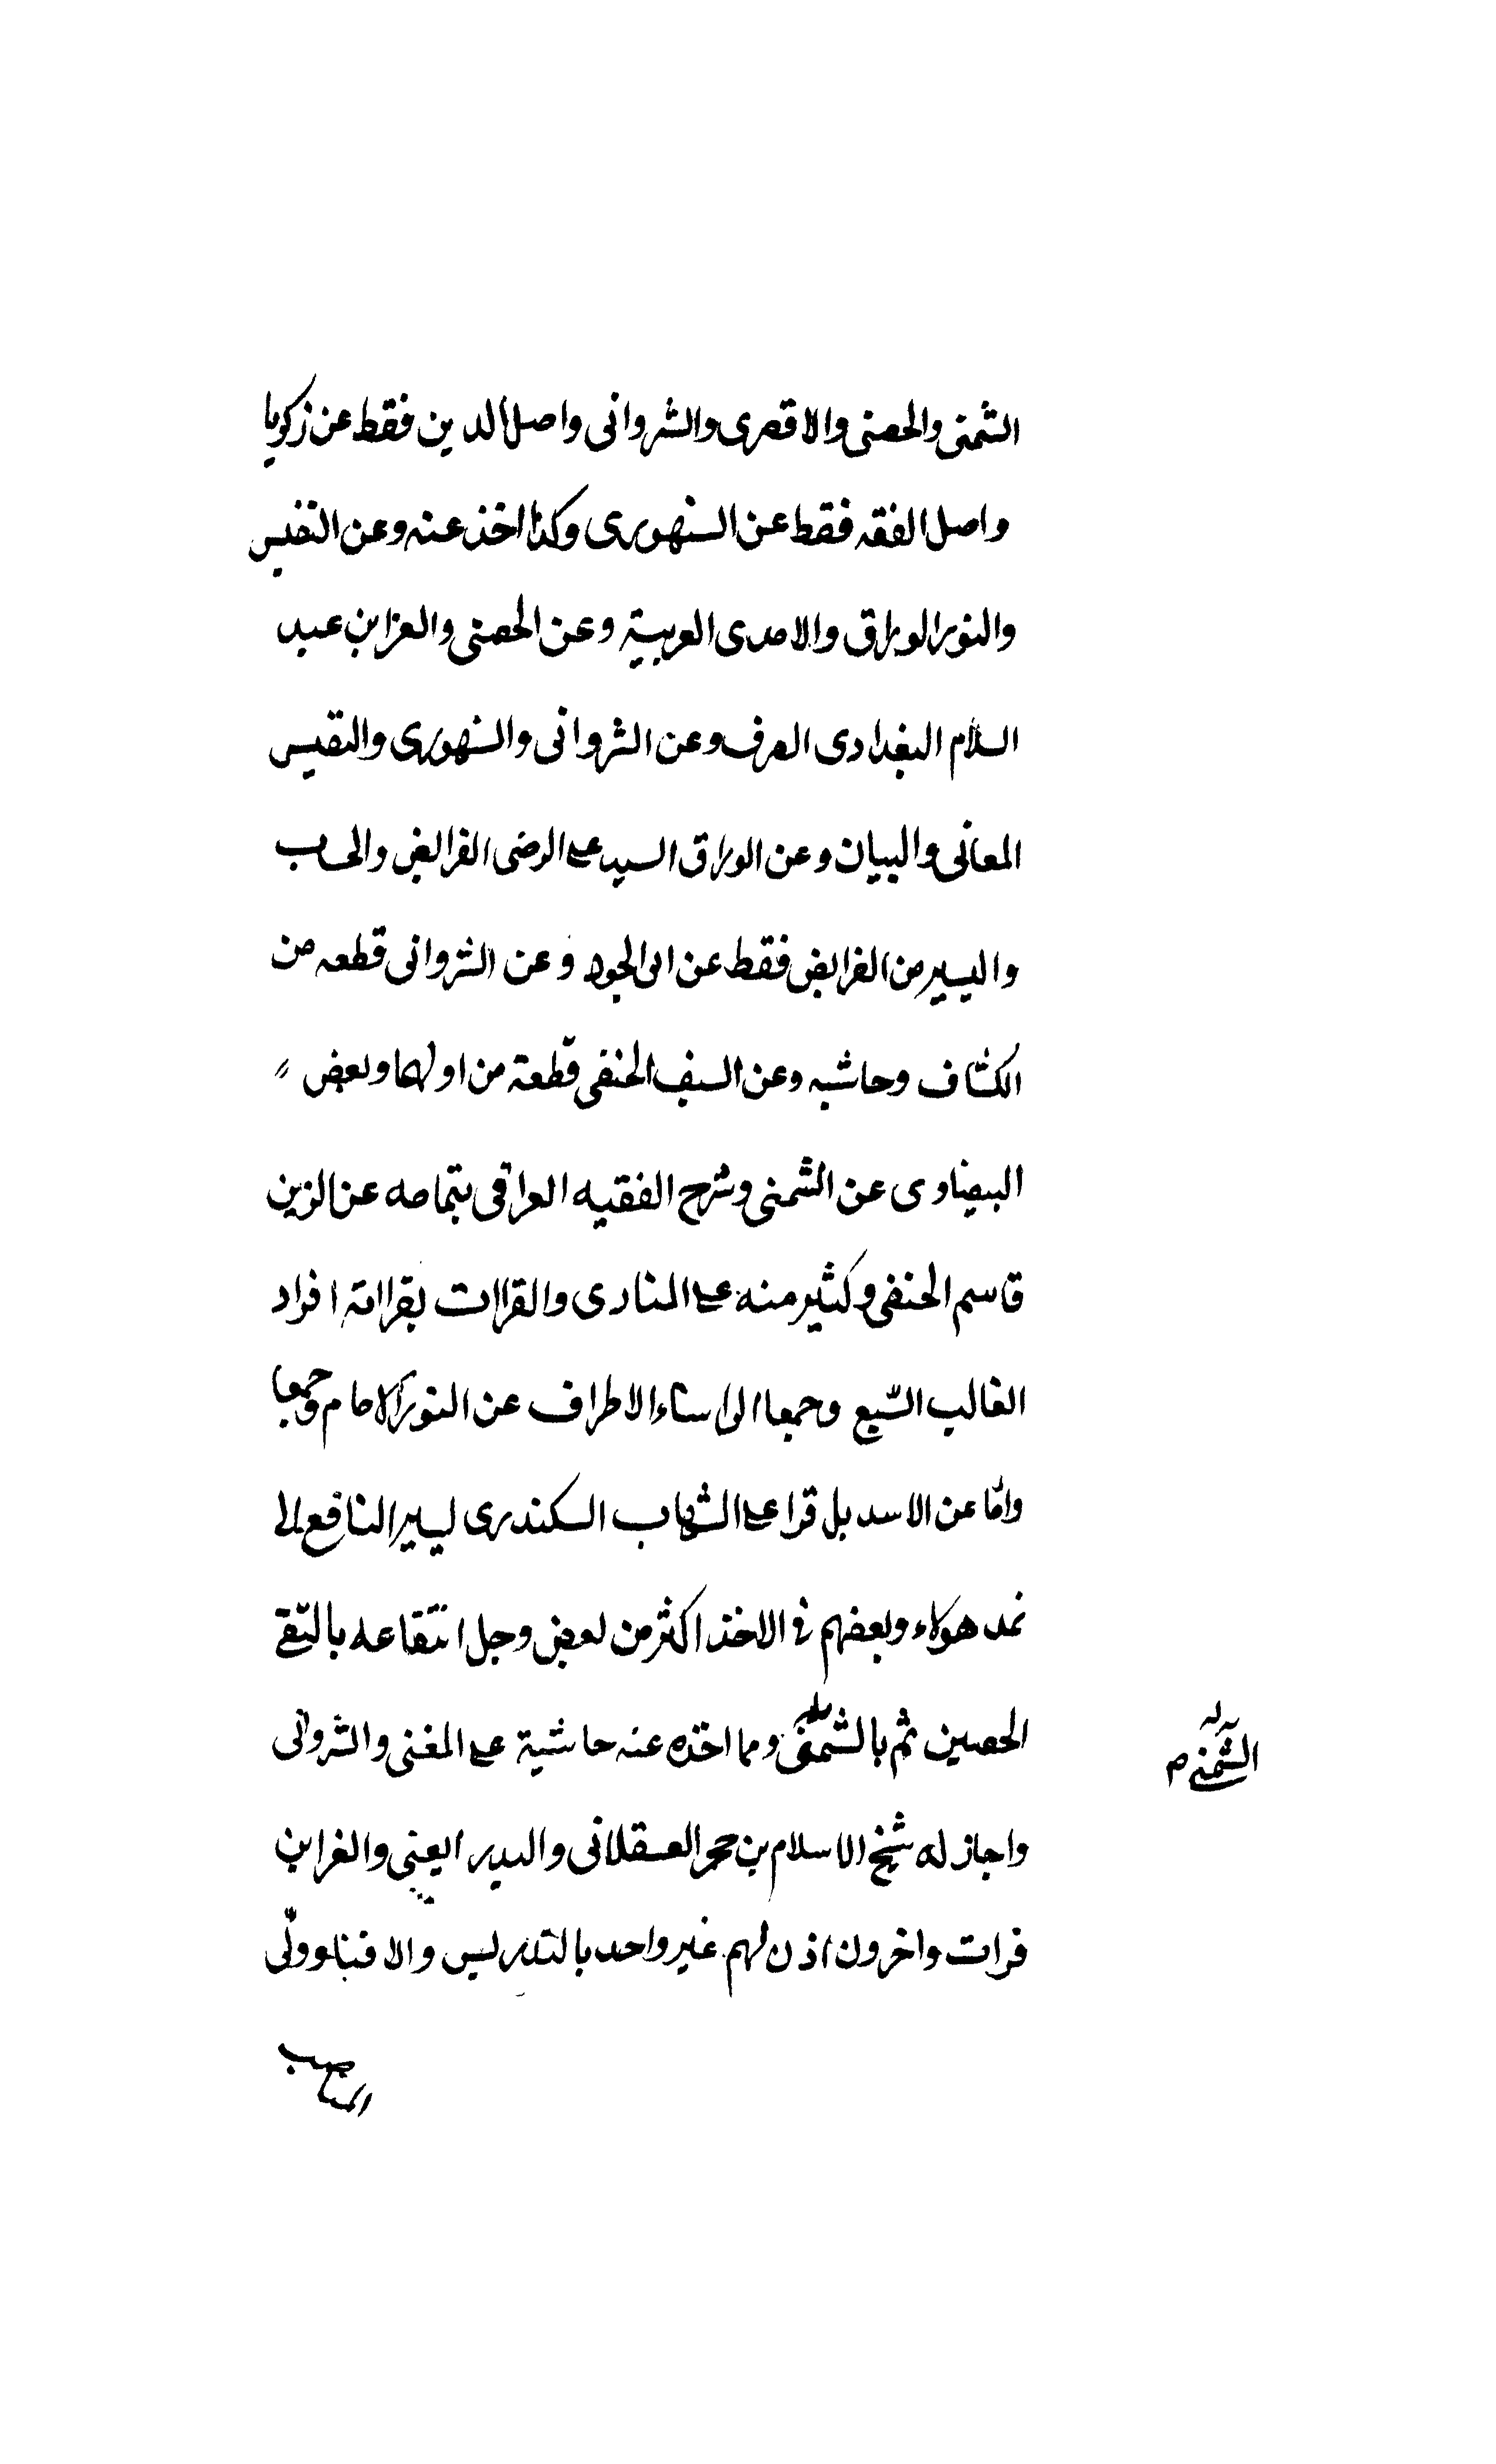 الشمنى والحصنى والاقصرى والشروانى واصل الدين فقط عن زكريا
واصل الفقه فقط عن السنهورى وكذا اخذ عنه وعن النفيس
والنور الوراق والامدى العربية وعن الحصنى والعز ابن عبد
السلام البغدادى الصرف وعن الشروانى والسنهورى والتقيس
المعانى والبيان وعن الوراق السيد على الرضى الفرائض والحساب
واليسير من الفرايض فقط عن ابى الجود وعن الشروانى قطعه من
الكشاف وحاشيه وعن السيف الحنفى قطعة من اولها وبعض
البيضاوى عن الشمنى وشرح الفقيه العراقى بتمامه عن الزين
قاسم الحنفى وكثير منه على المناوى والقراات بقراته افراد
الغالب السبع وجمعا الى اثناء الاطراف عن النور الامام وجمعا
واما عن الاسد بل قرا على الشهاب السكندرى ليسير النافع الى
نمد هولاء وبعضهم فى الاخذ اكثر من بعض وجل انتقاعه بالتقى
الحصين ثم بالشمنى ومما اخذه عنه حاشية على المغنى والشروانى
الشمنى م
واجاز له شيخ الاسلام بن حجر العسقلانى والبدر العينى والغر ابن
فرات واخرون اذن لهم غير واحد بالتدريس والافتا وولى
المناصب